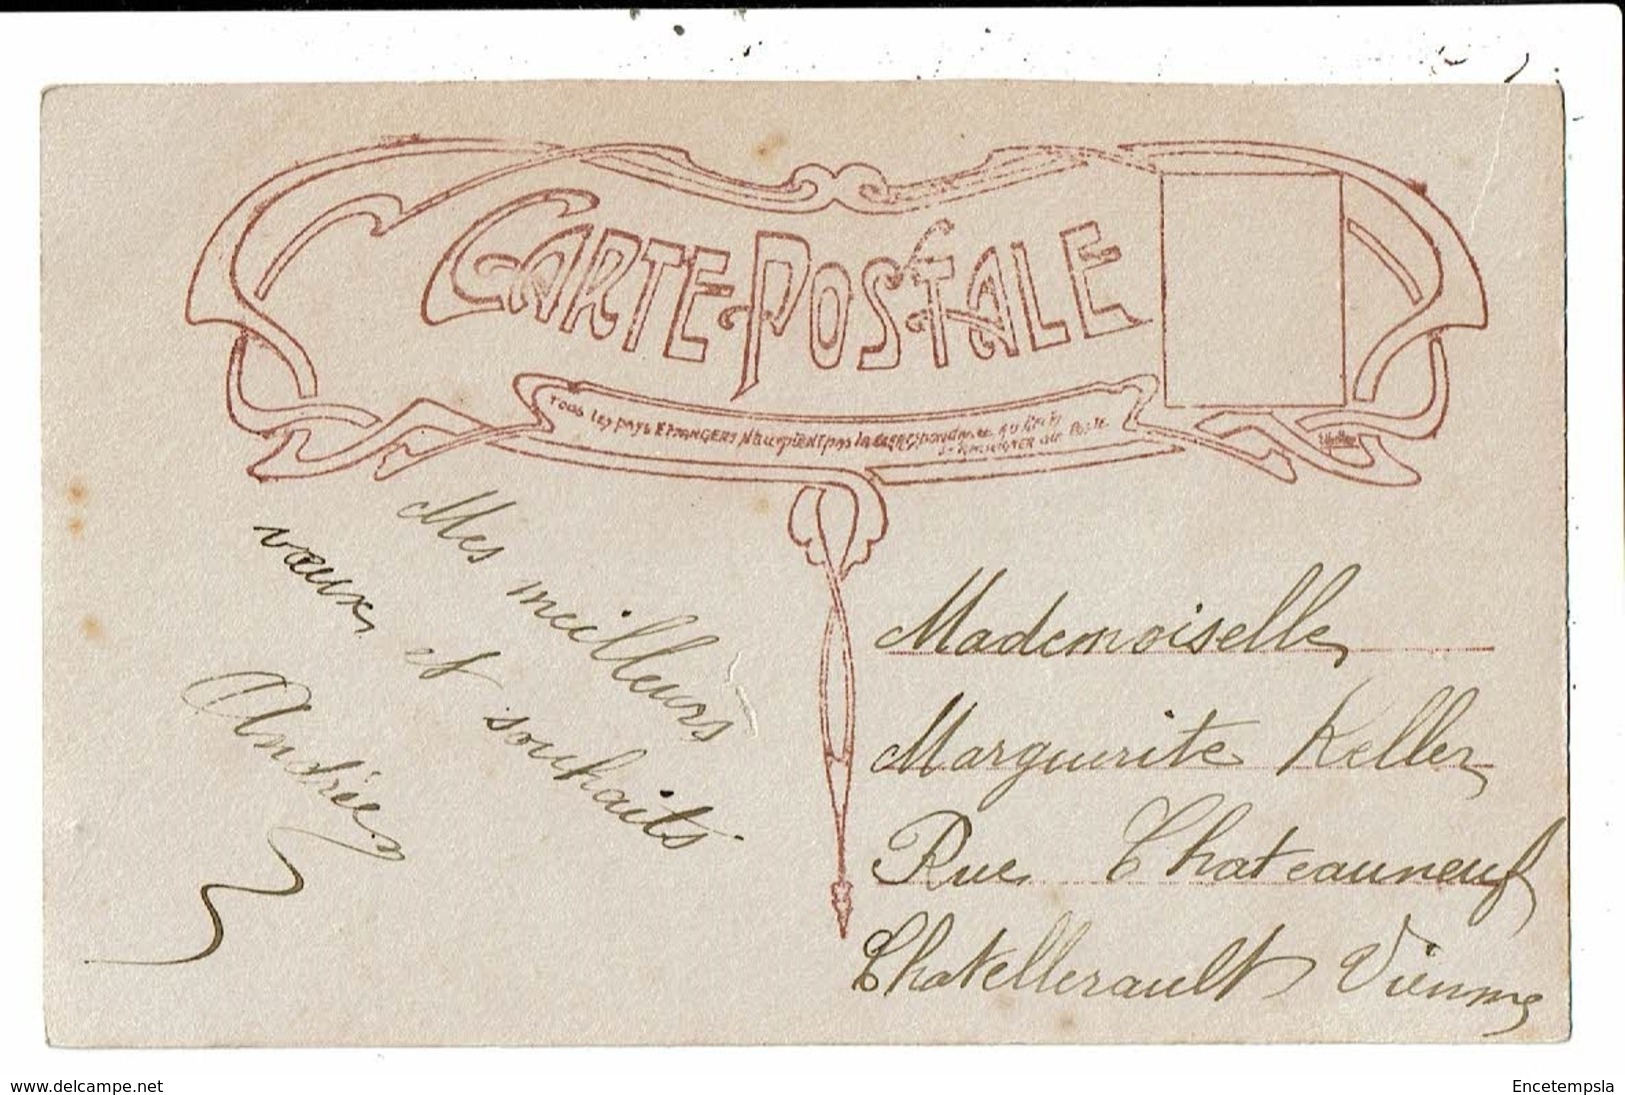 CARTE-POSTALE
TOUS LES PAYS ETRANGERS N'acceptent pas la CORRESpondance au Recto
Se Renseigner à la Poste
Mes meilleurs
vœux et souhaits
Andrée
Mademoiselle
Marguerite Keller
Rue Chateauneuf
Chatellerault Vienne
www.delcampe.net
Encetempsla